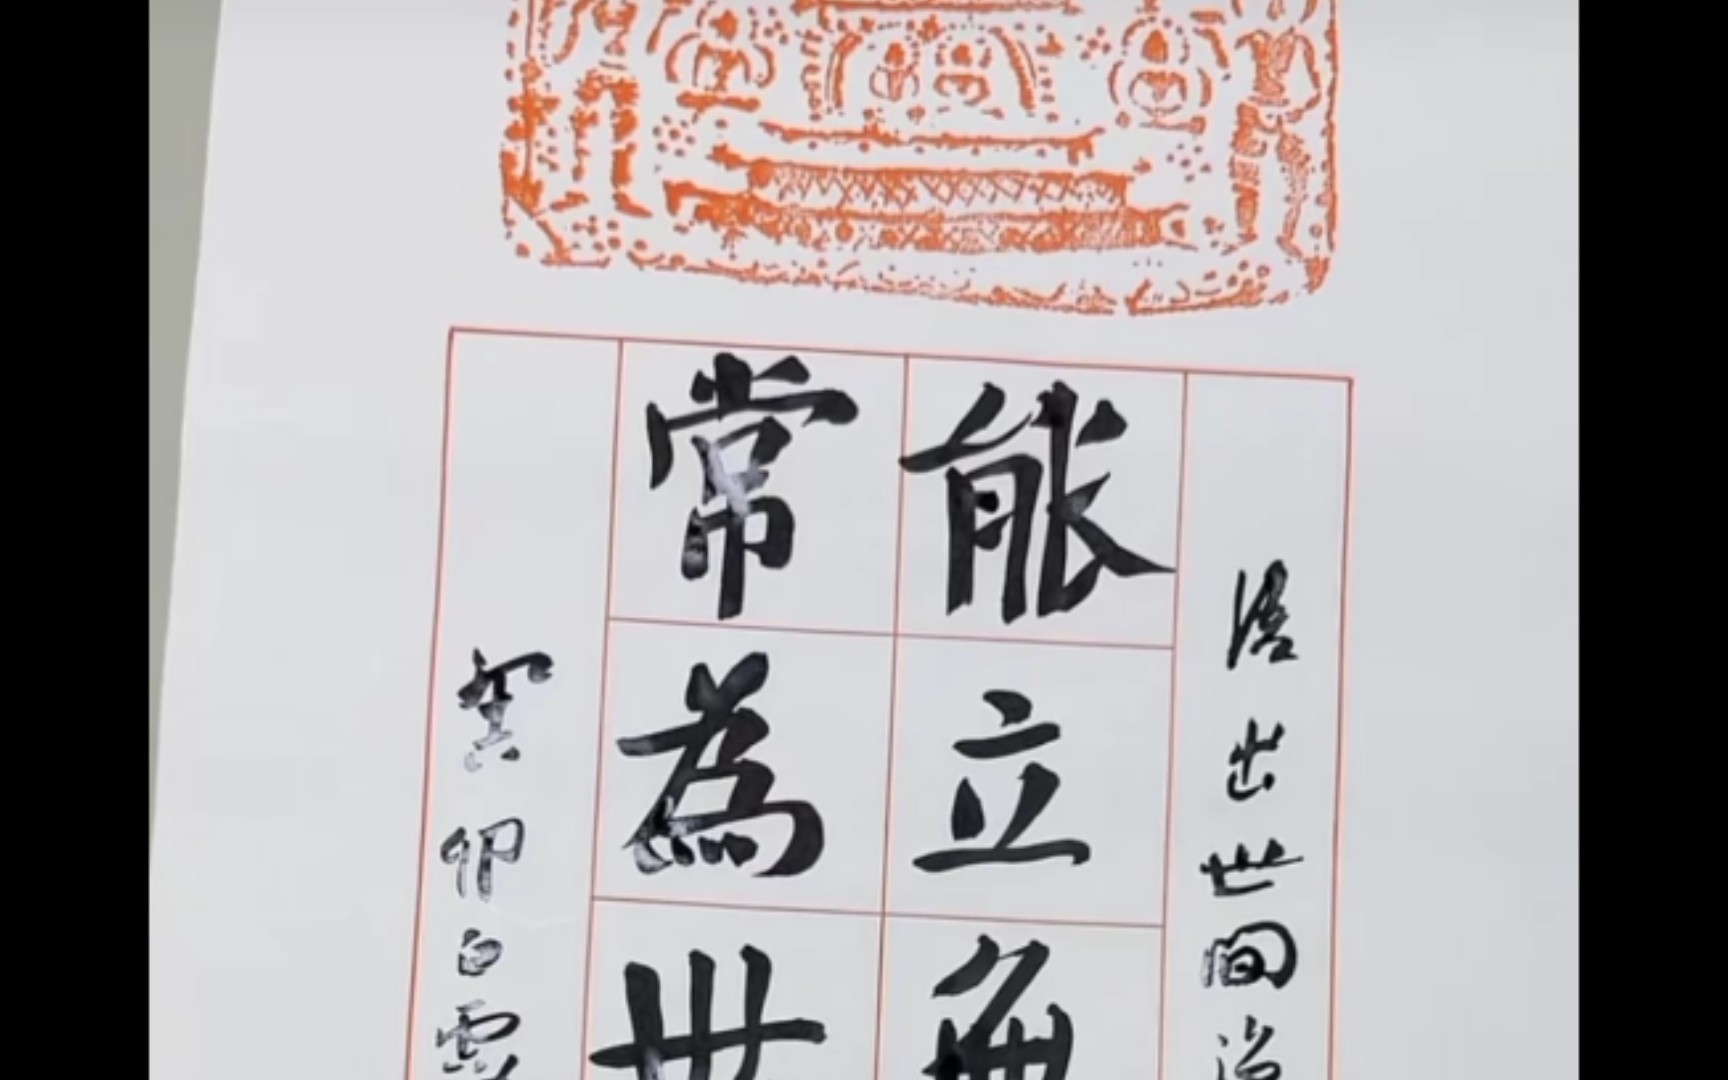 出世間
能立無
常為世
癸卯白露